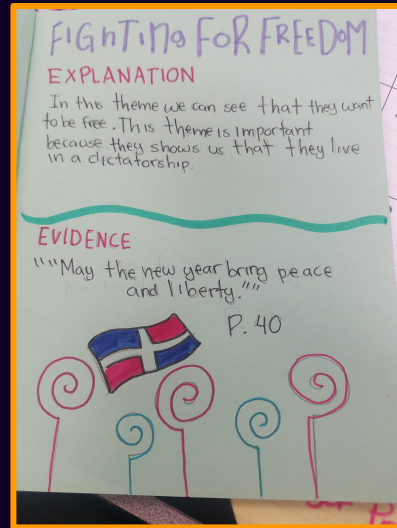 FIGHTING FOR FREEDOM
EXPLANATION
In this theme we can see that they want
to be free. This theme is important
because they shows us that they live
in a dictatorship.
EVIDENCE
""May the new year bring peace
and liberty.""
P. 40